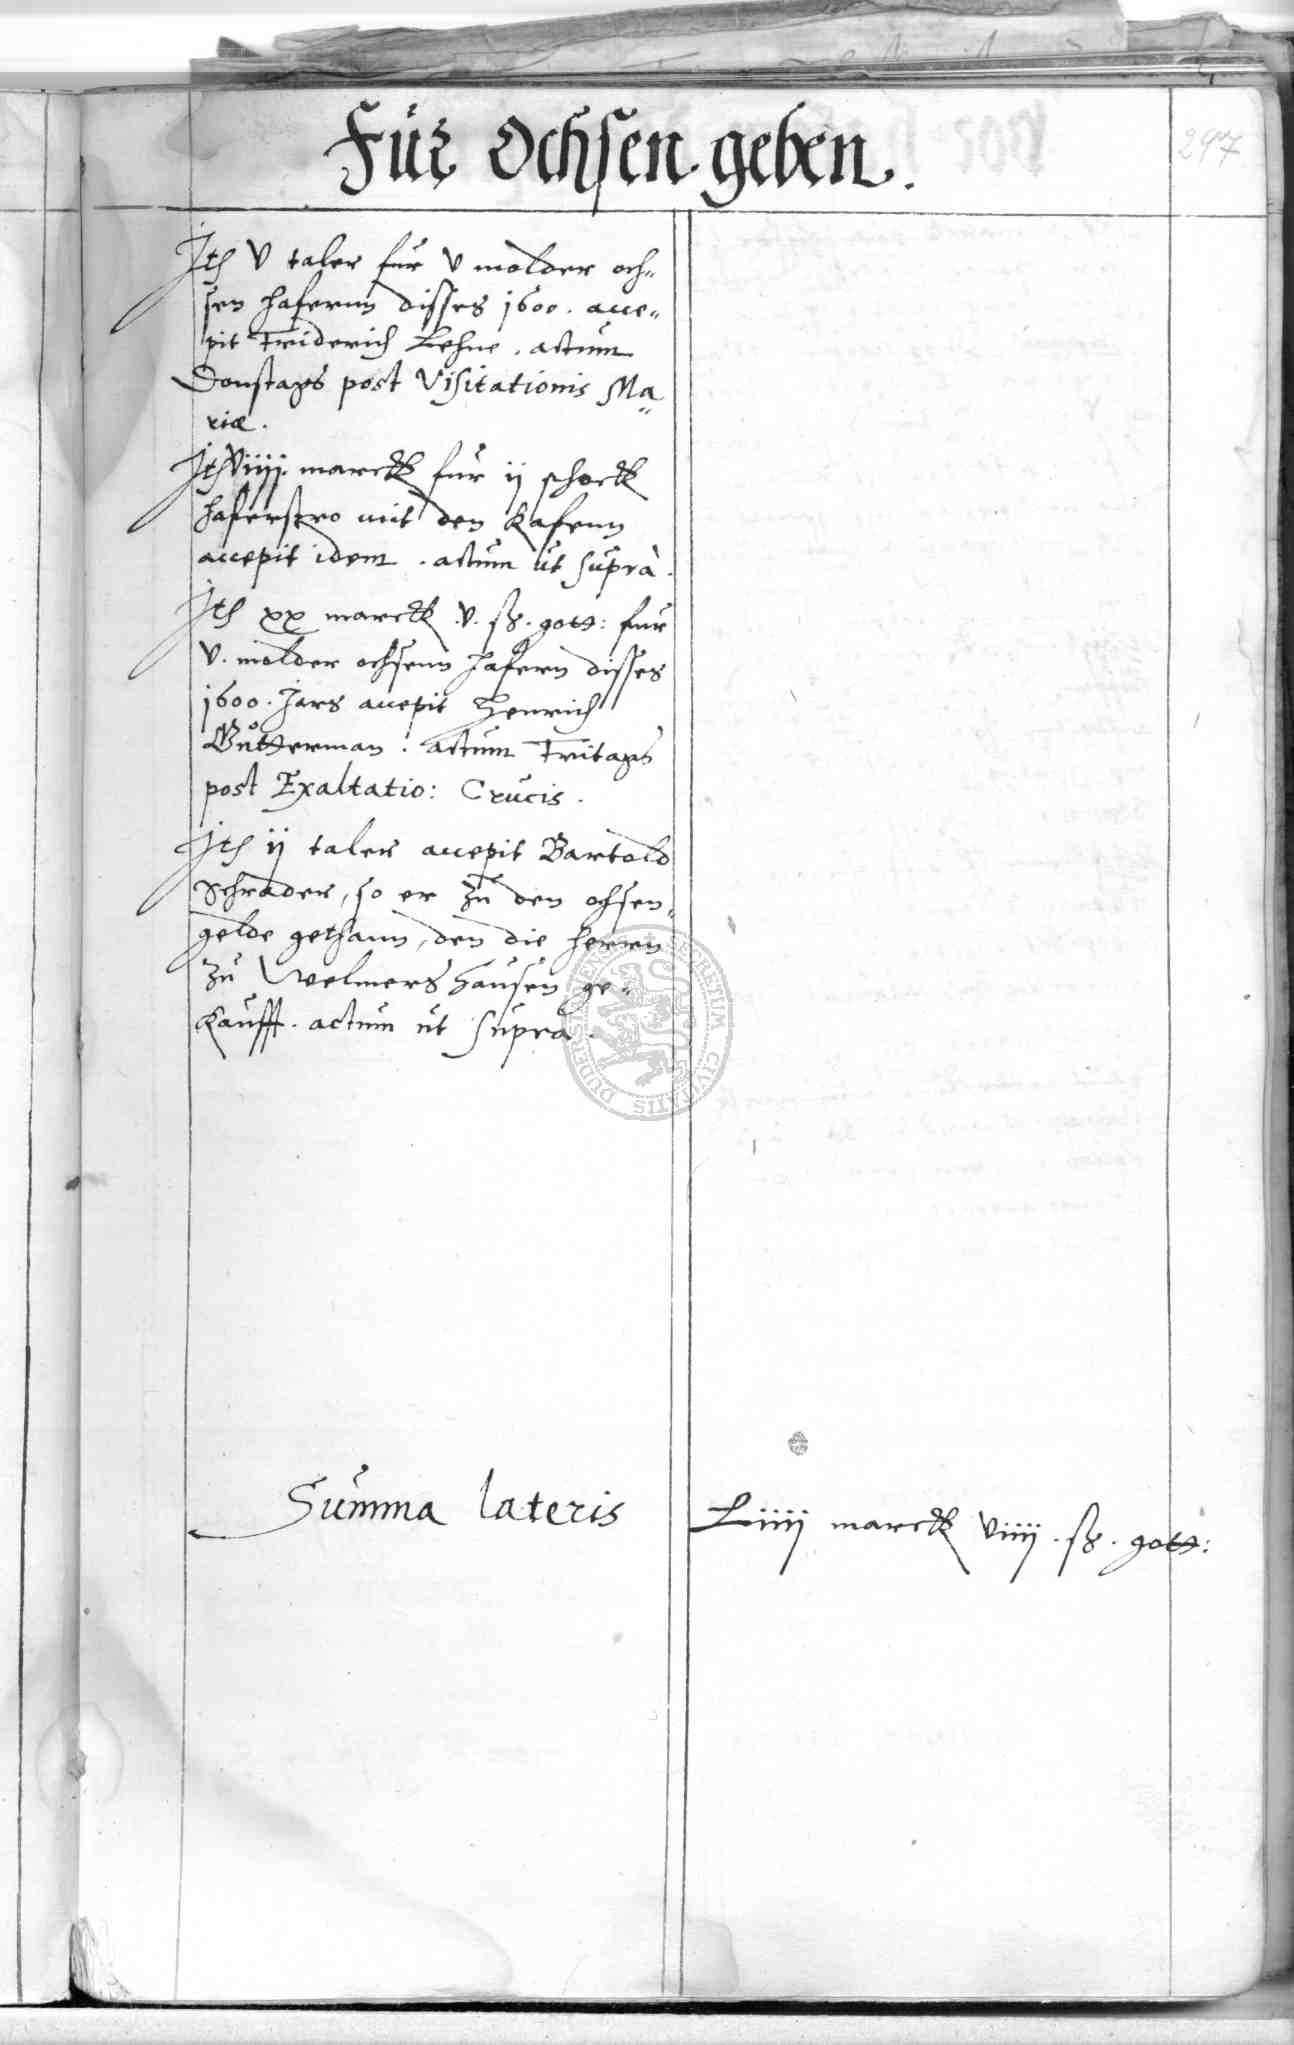 297
Für Ochsen geben.
Ith V taler fur V molder och=
sen hafernn disses 1600. acce=
pit Friderich Lehne. actum
Donstags post Visitationis Ma=
riæ.
Ith Viiij. marckk fur ij schockk
haferstro mit den Kafenn
accepit idem. actum ut suprà.
Ith XX marckk .V. ß. gott: fur
V. molder ochsenn hafern disses
1600. Jars accepit Henrich
Gutterman. actum Fritags
post Exaltatio: Crucis.
Ith ij taler accepit Bartold
Schrader, so er zu den ochsen=
gelde gethann, den die herrn
zu Welmershausen ge=
kaufft. actum ut supra.
SECRETUM CIVITATIS DUDERSTADENSIS
Summa lateris Liiij marckk Viiij. ß. gott: